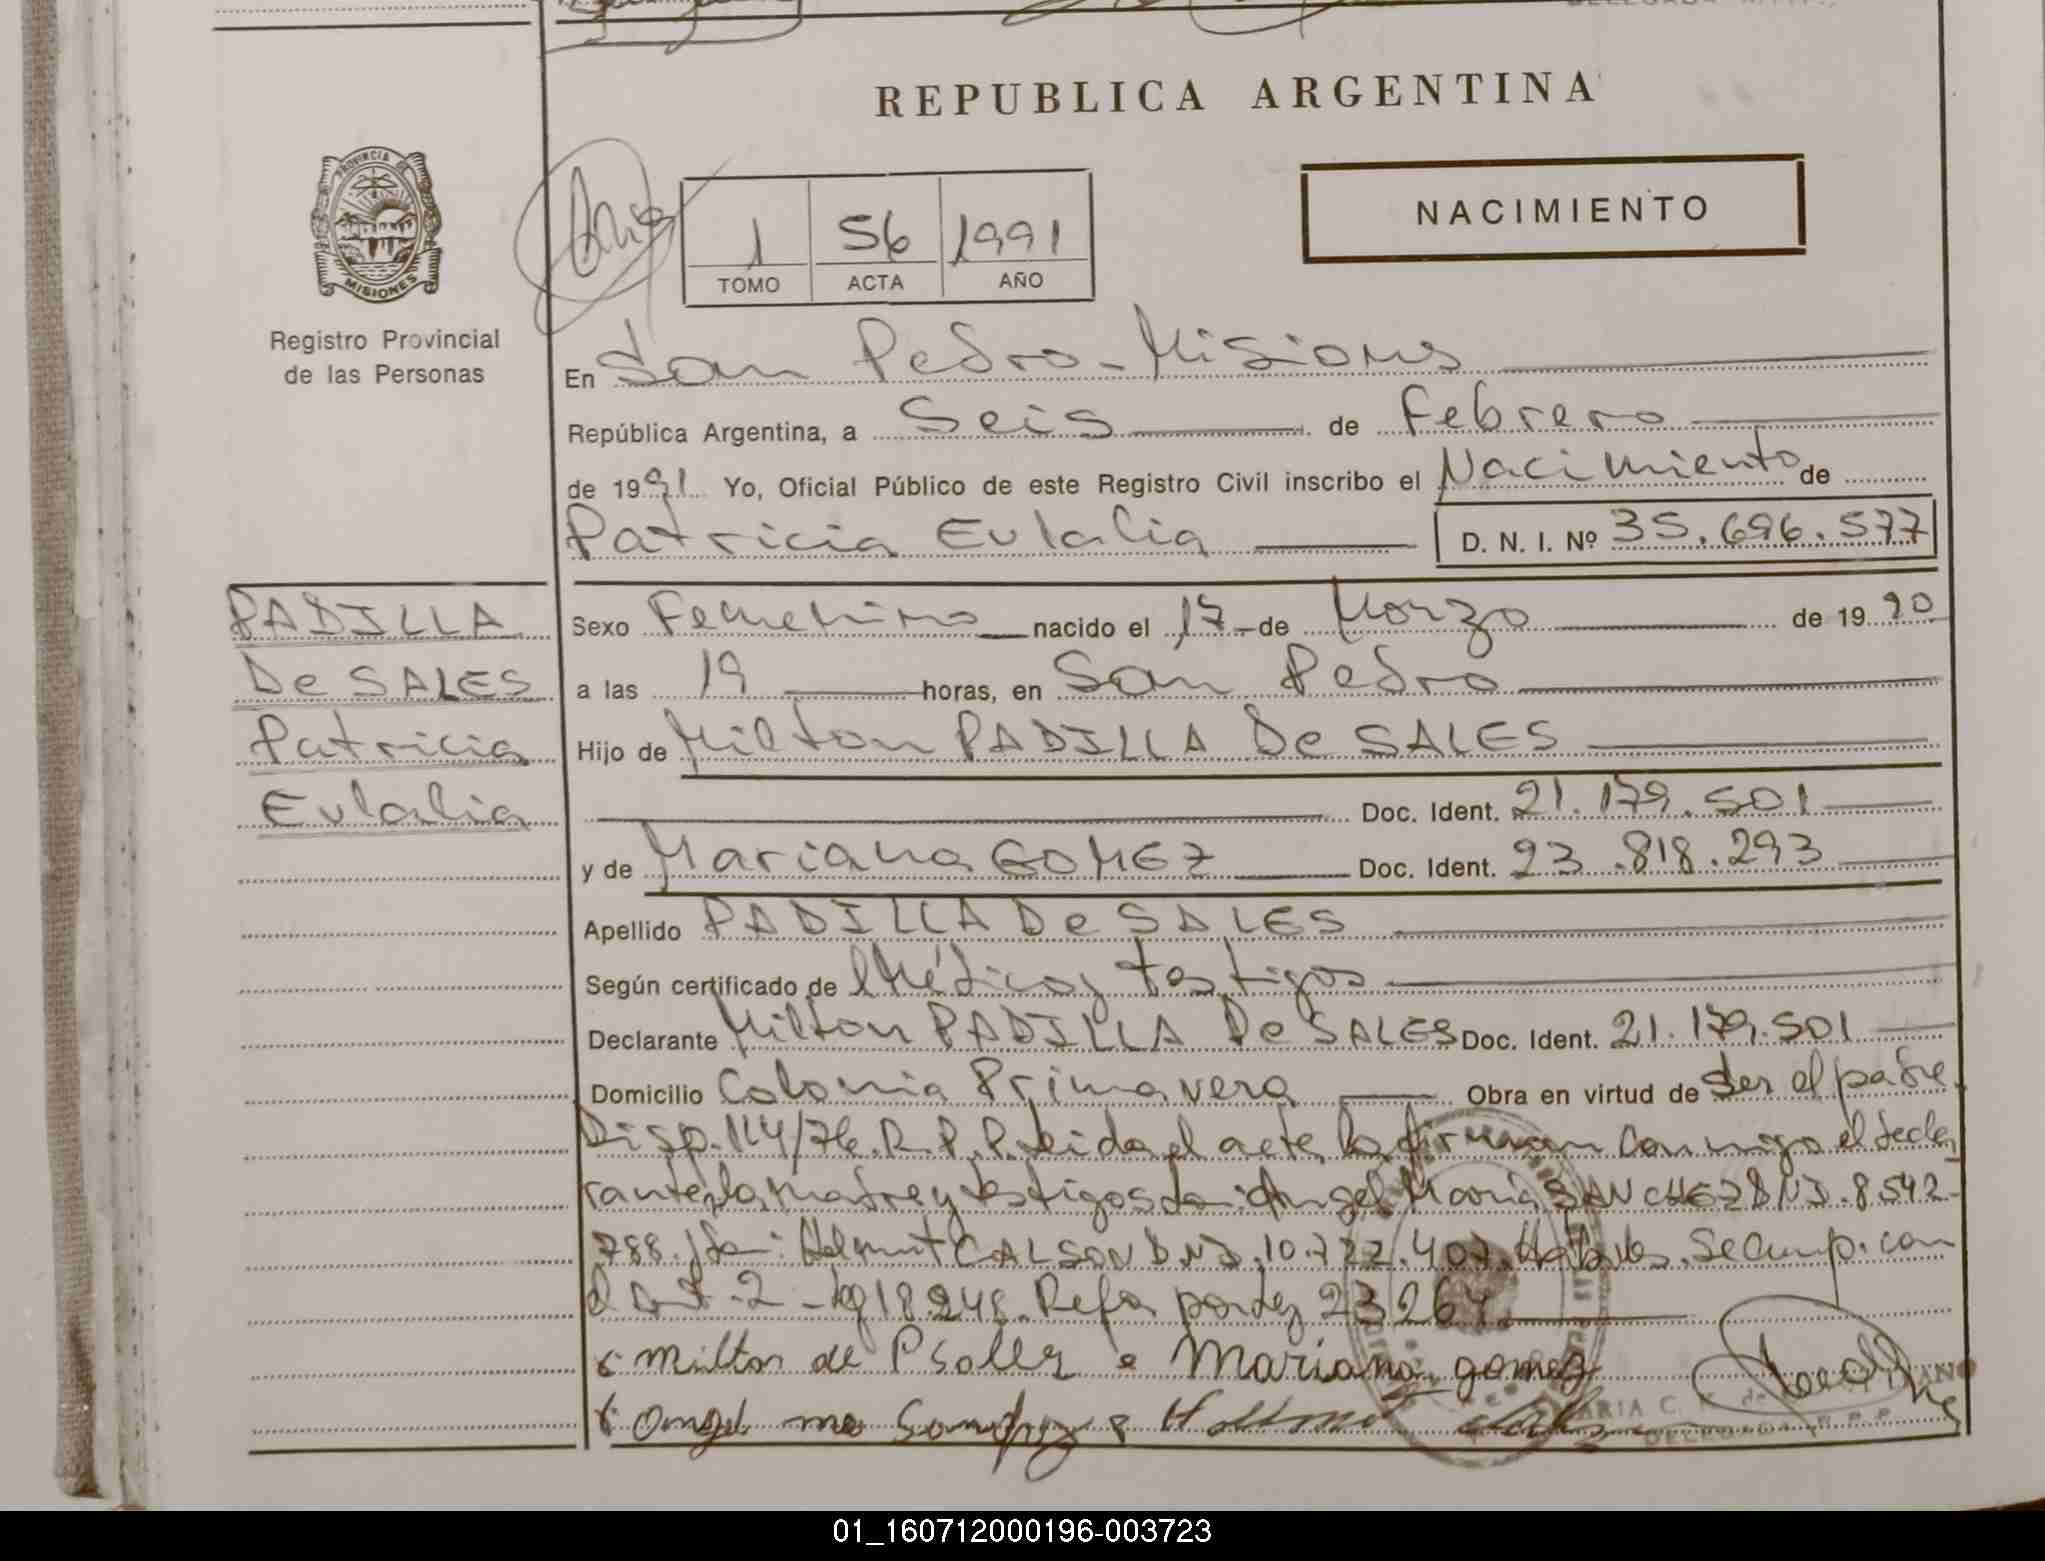 REPUBLICA ARGENTINA
PROVINCIA DE
MISIONES
Registro Provincial
de las Personas
1 56 1991
TOMO ACTA AÑO
NACIMIENTO
En San Pedro - Misiones
República Argentina, a Seis de Febrero
de 1991 Yo, Oficial Público de este Registro Civil inscribo el Nacimiento de
Patricia Eulalia D. N. I. Nº 35.696.577
PADILLA
De SALES
Patricia
Eulalia
Sexo Femenino nacido el 17 de Marzo de 1990
a las 19 horas, en San Pedro
Hijo de Milton PADILLA De SALES
Doc. Ident. 21.179.501
y de Mariana GOMEZ Doc. Ident. 23.818.293
Apellido PADILLA De SALES
Según certificado de Médico y testigos
Declarante Milton PADILLA De SALES Doc. Ident. 21.179.501
Domicilio Colonia Primavera Obra en virtud de ser el padre
Disp. 114/76. R. P. P. Leida el acta, la firman conmigo el decla
rante, la madre y testigos Don: Angel Maria SANCHEZ DNI. 8.542.
788. y Don: Helmut CALSON DNI. 10.722.407. Habiles. Se cump. con
el art. 2 - ley 18.248. Refor por ley 23264
Milton de P Salles Mariana gomez
Angel ma
MARIA C.
DELEGADA R.P.P.
01_160712000196-003723